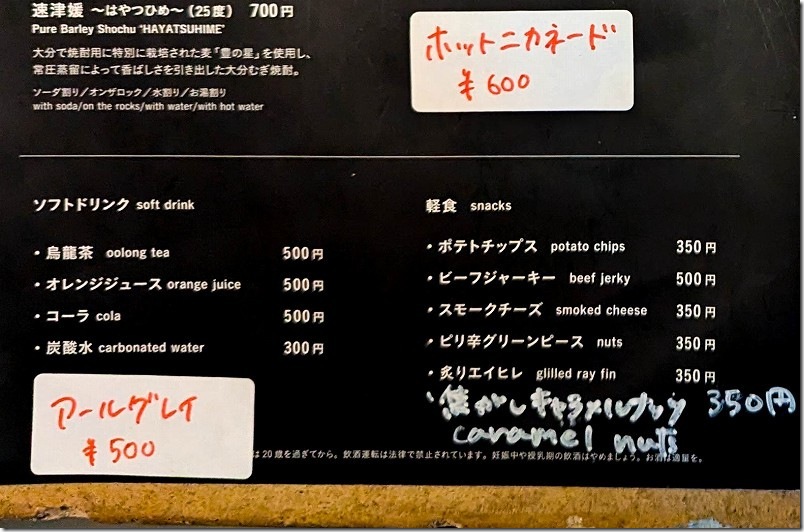 速津媛 ～はやつひめ～（25度） 700円
Pure Barley Shochu "HAYATSUHIME"
大分で焼酎用に特別に栽培された麦「豊の星」を使用し、
常圧蒸留によって香ばしさを引き出した大分むぎ焼酎。
ソーダ割り／オンザロック／水割り／お湯割り
with soda/on the rocks/with water/with hot water
ホットニカネード
¥600
ソフトドリンク soft drink
・烏龍茶 oolong tea 500円
・オレンジジュース orange juice 500円
・コーラ cola 500円
・炭酸水 carbonated water 300円
アールグレイ
¥500
軽食 snacks
・ポテトチップス potato chips 350円
・ビーフジャーキー beef jerky 500円
・スモークチーズ smoked cheese 350円
・ピリ辛グリーンピース nuts 350円
・炙りエイヒレ glilled ray fin 350円
・焦がしキャラメルナッツ 350円
caramel nuts
は20歳を過ぎてから。飲酒運転は法律で禁止されています。妊娠中や授乳期の飲酒はやめましょう。お酒は適量を。